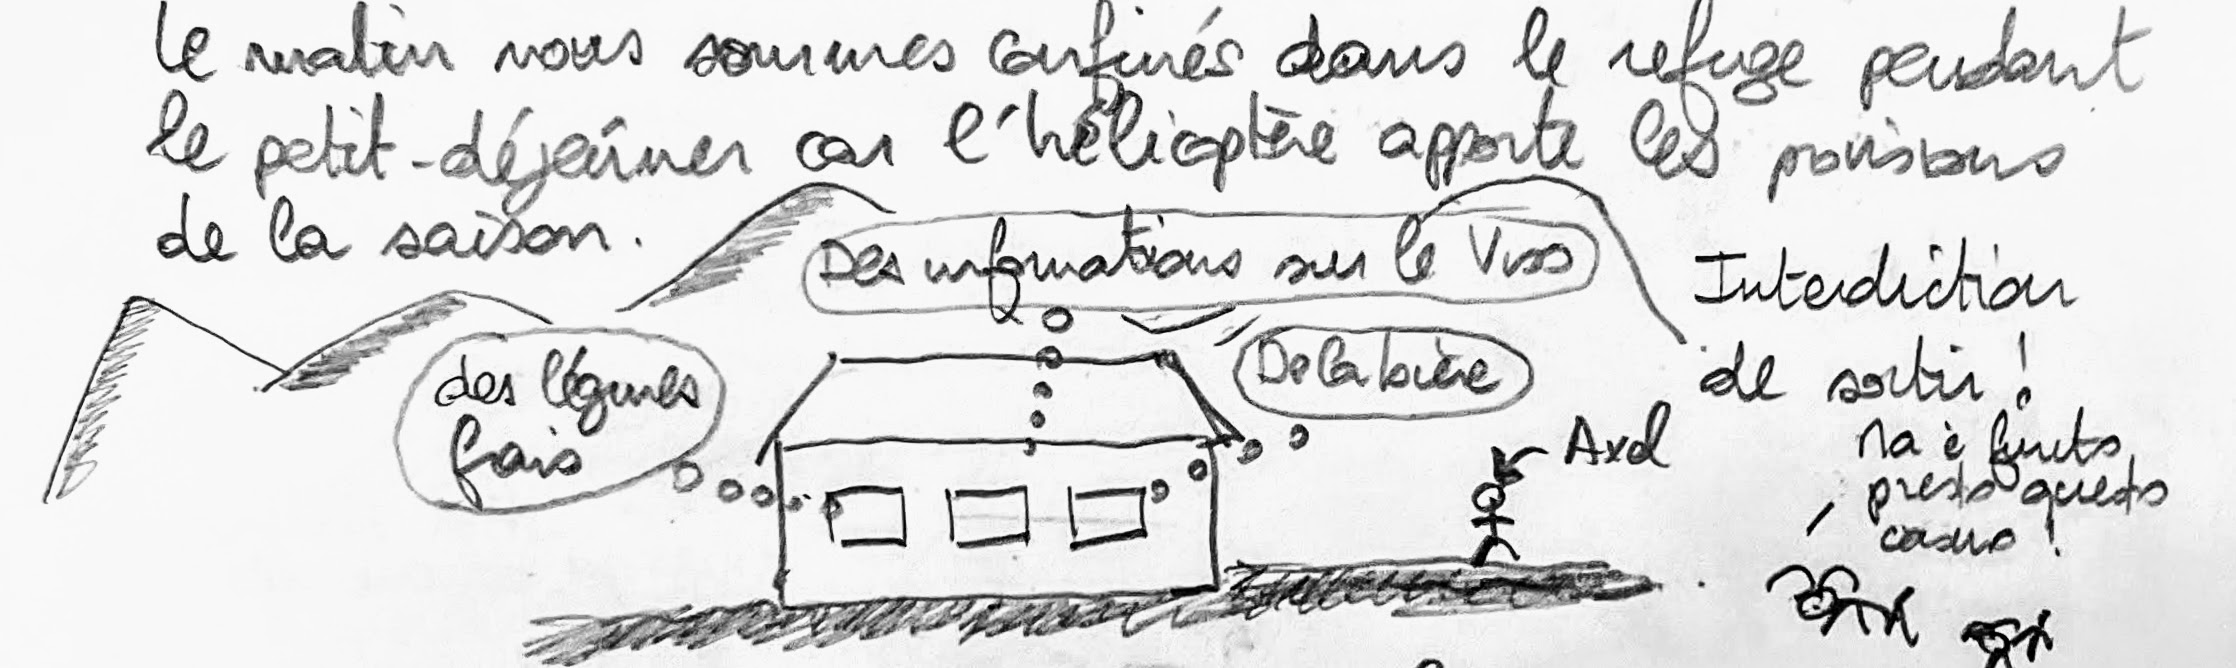 le matin nous sommes confinés dans le refuge pendant
le petit-déjeûner car l'hélicoptère apporte les provisions
de la saison.
Des informations sur le Viso
des légumes
frais
De la bière
Interdiction
de sortir !
Axel
presto questo
casino !